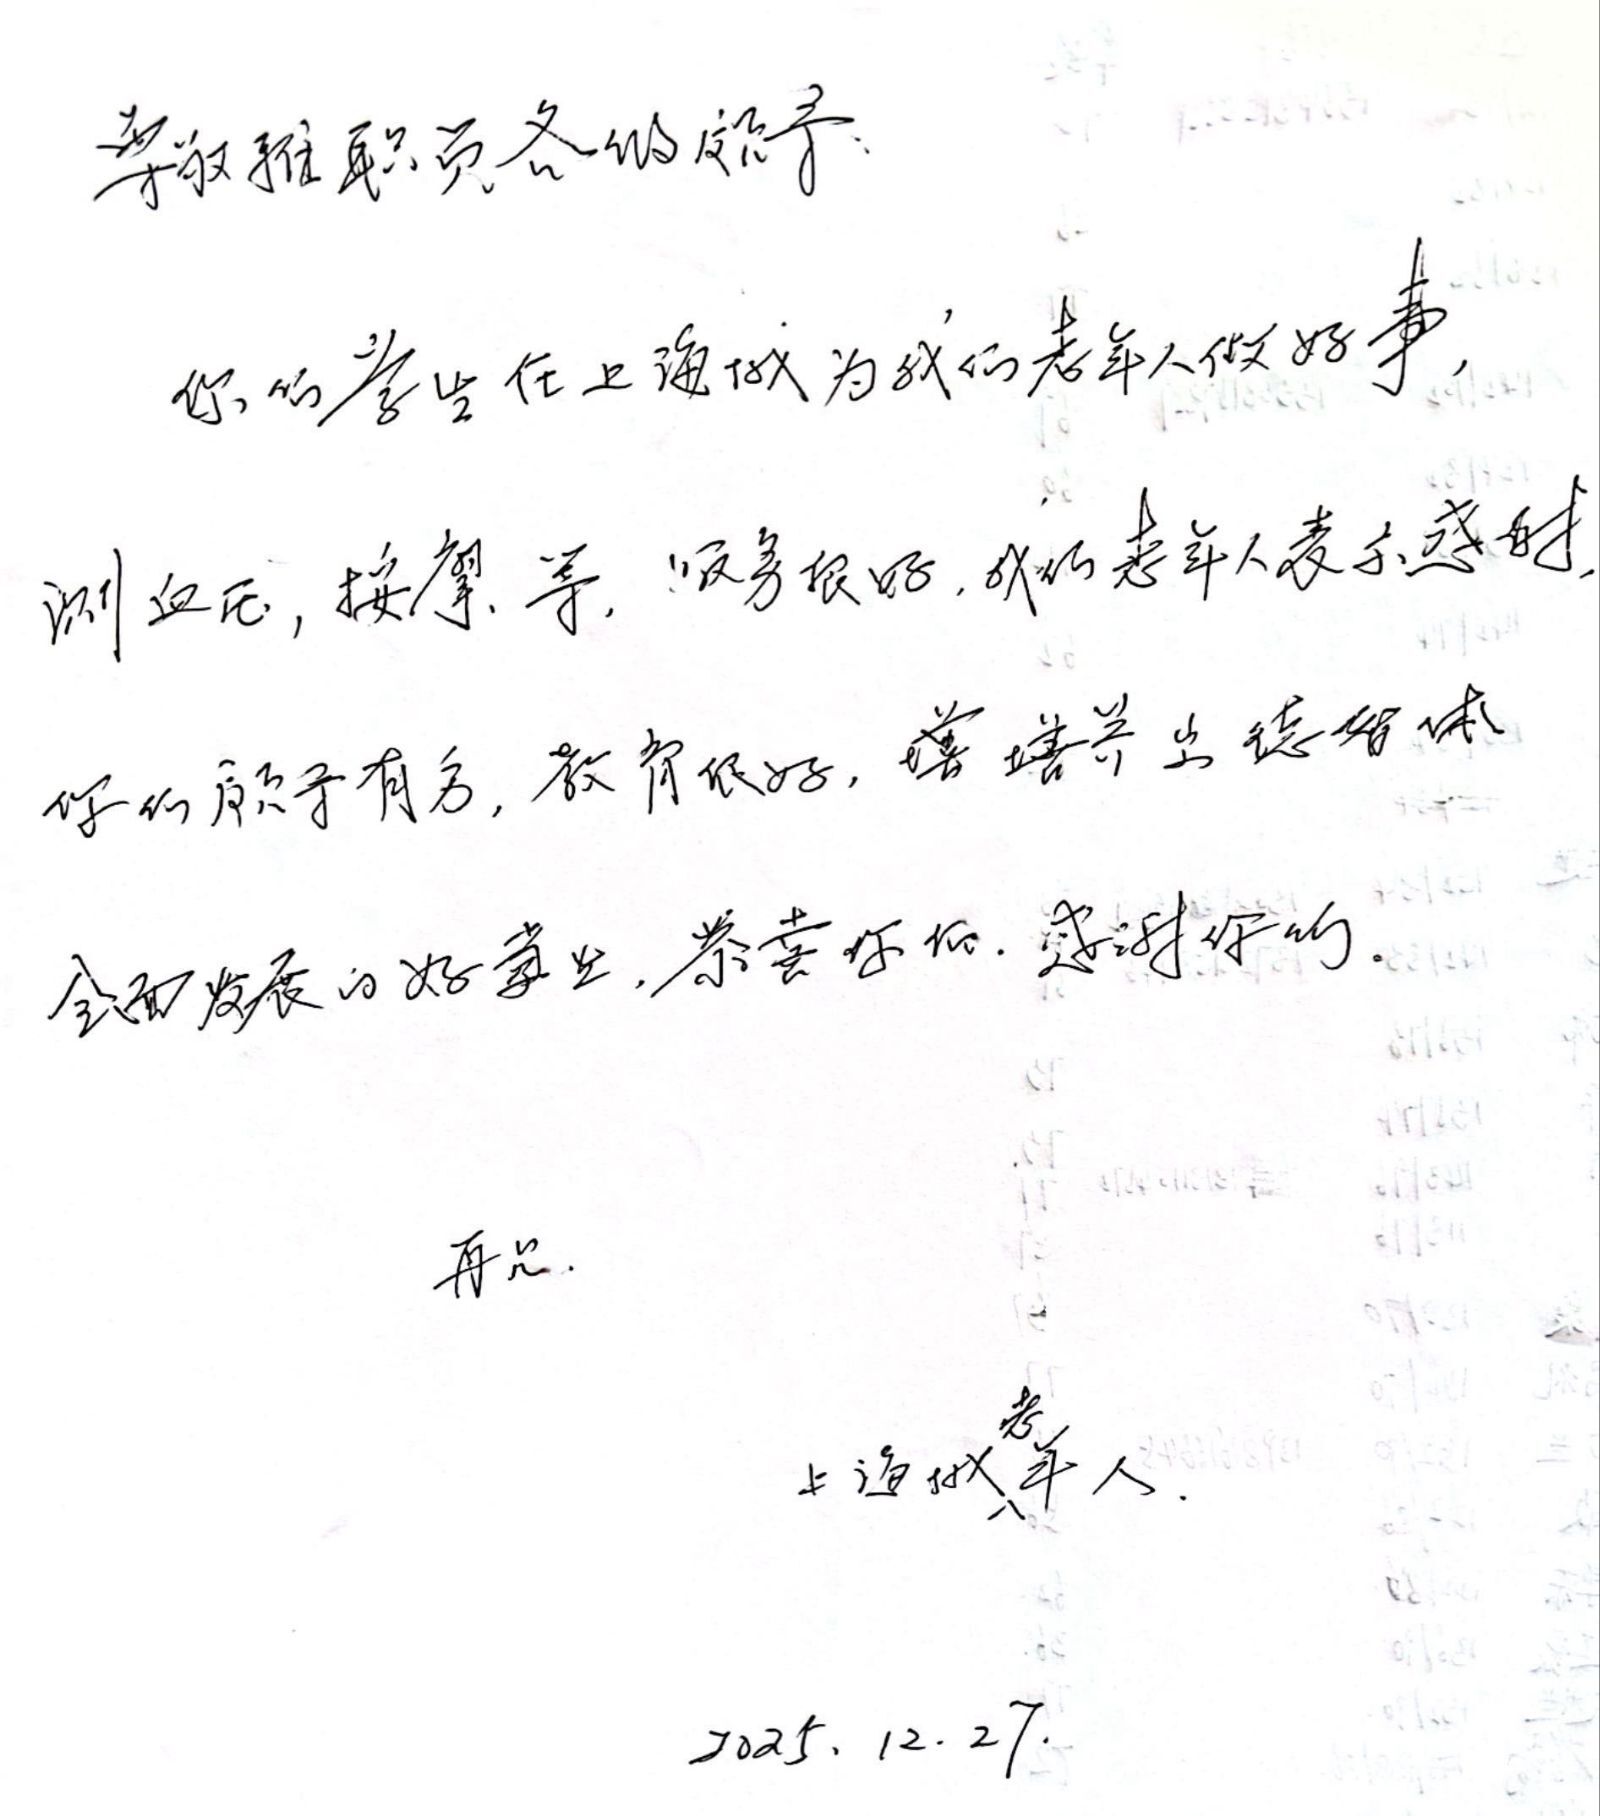 尊敬雅职员各位领导:
你们学生在上海城为我们老年人做好事,
测血压,按摩、等,服务很好,我们老年人表示感射,
你们领导有方,教育很好,培养出德智体
全面发展的好学生,恭喜你们.感谢你们.
再见.
上海城老年人.
2025.12.27.